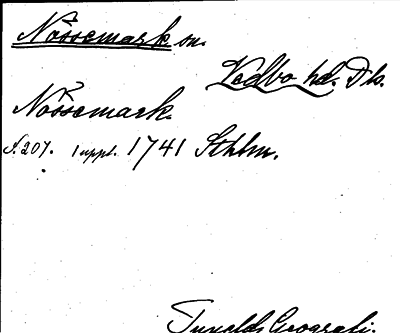 Nössemark sn.
Vedbo hd. Dls.
Nössemark.
S. 207. 1 uppl. 1741 Sthlm.
Tunelds Geografi.